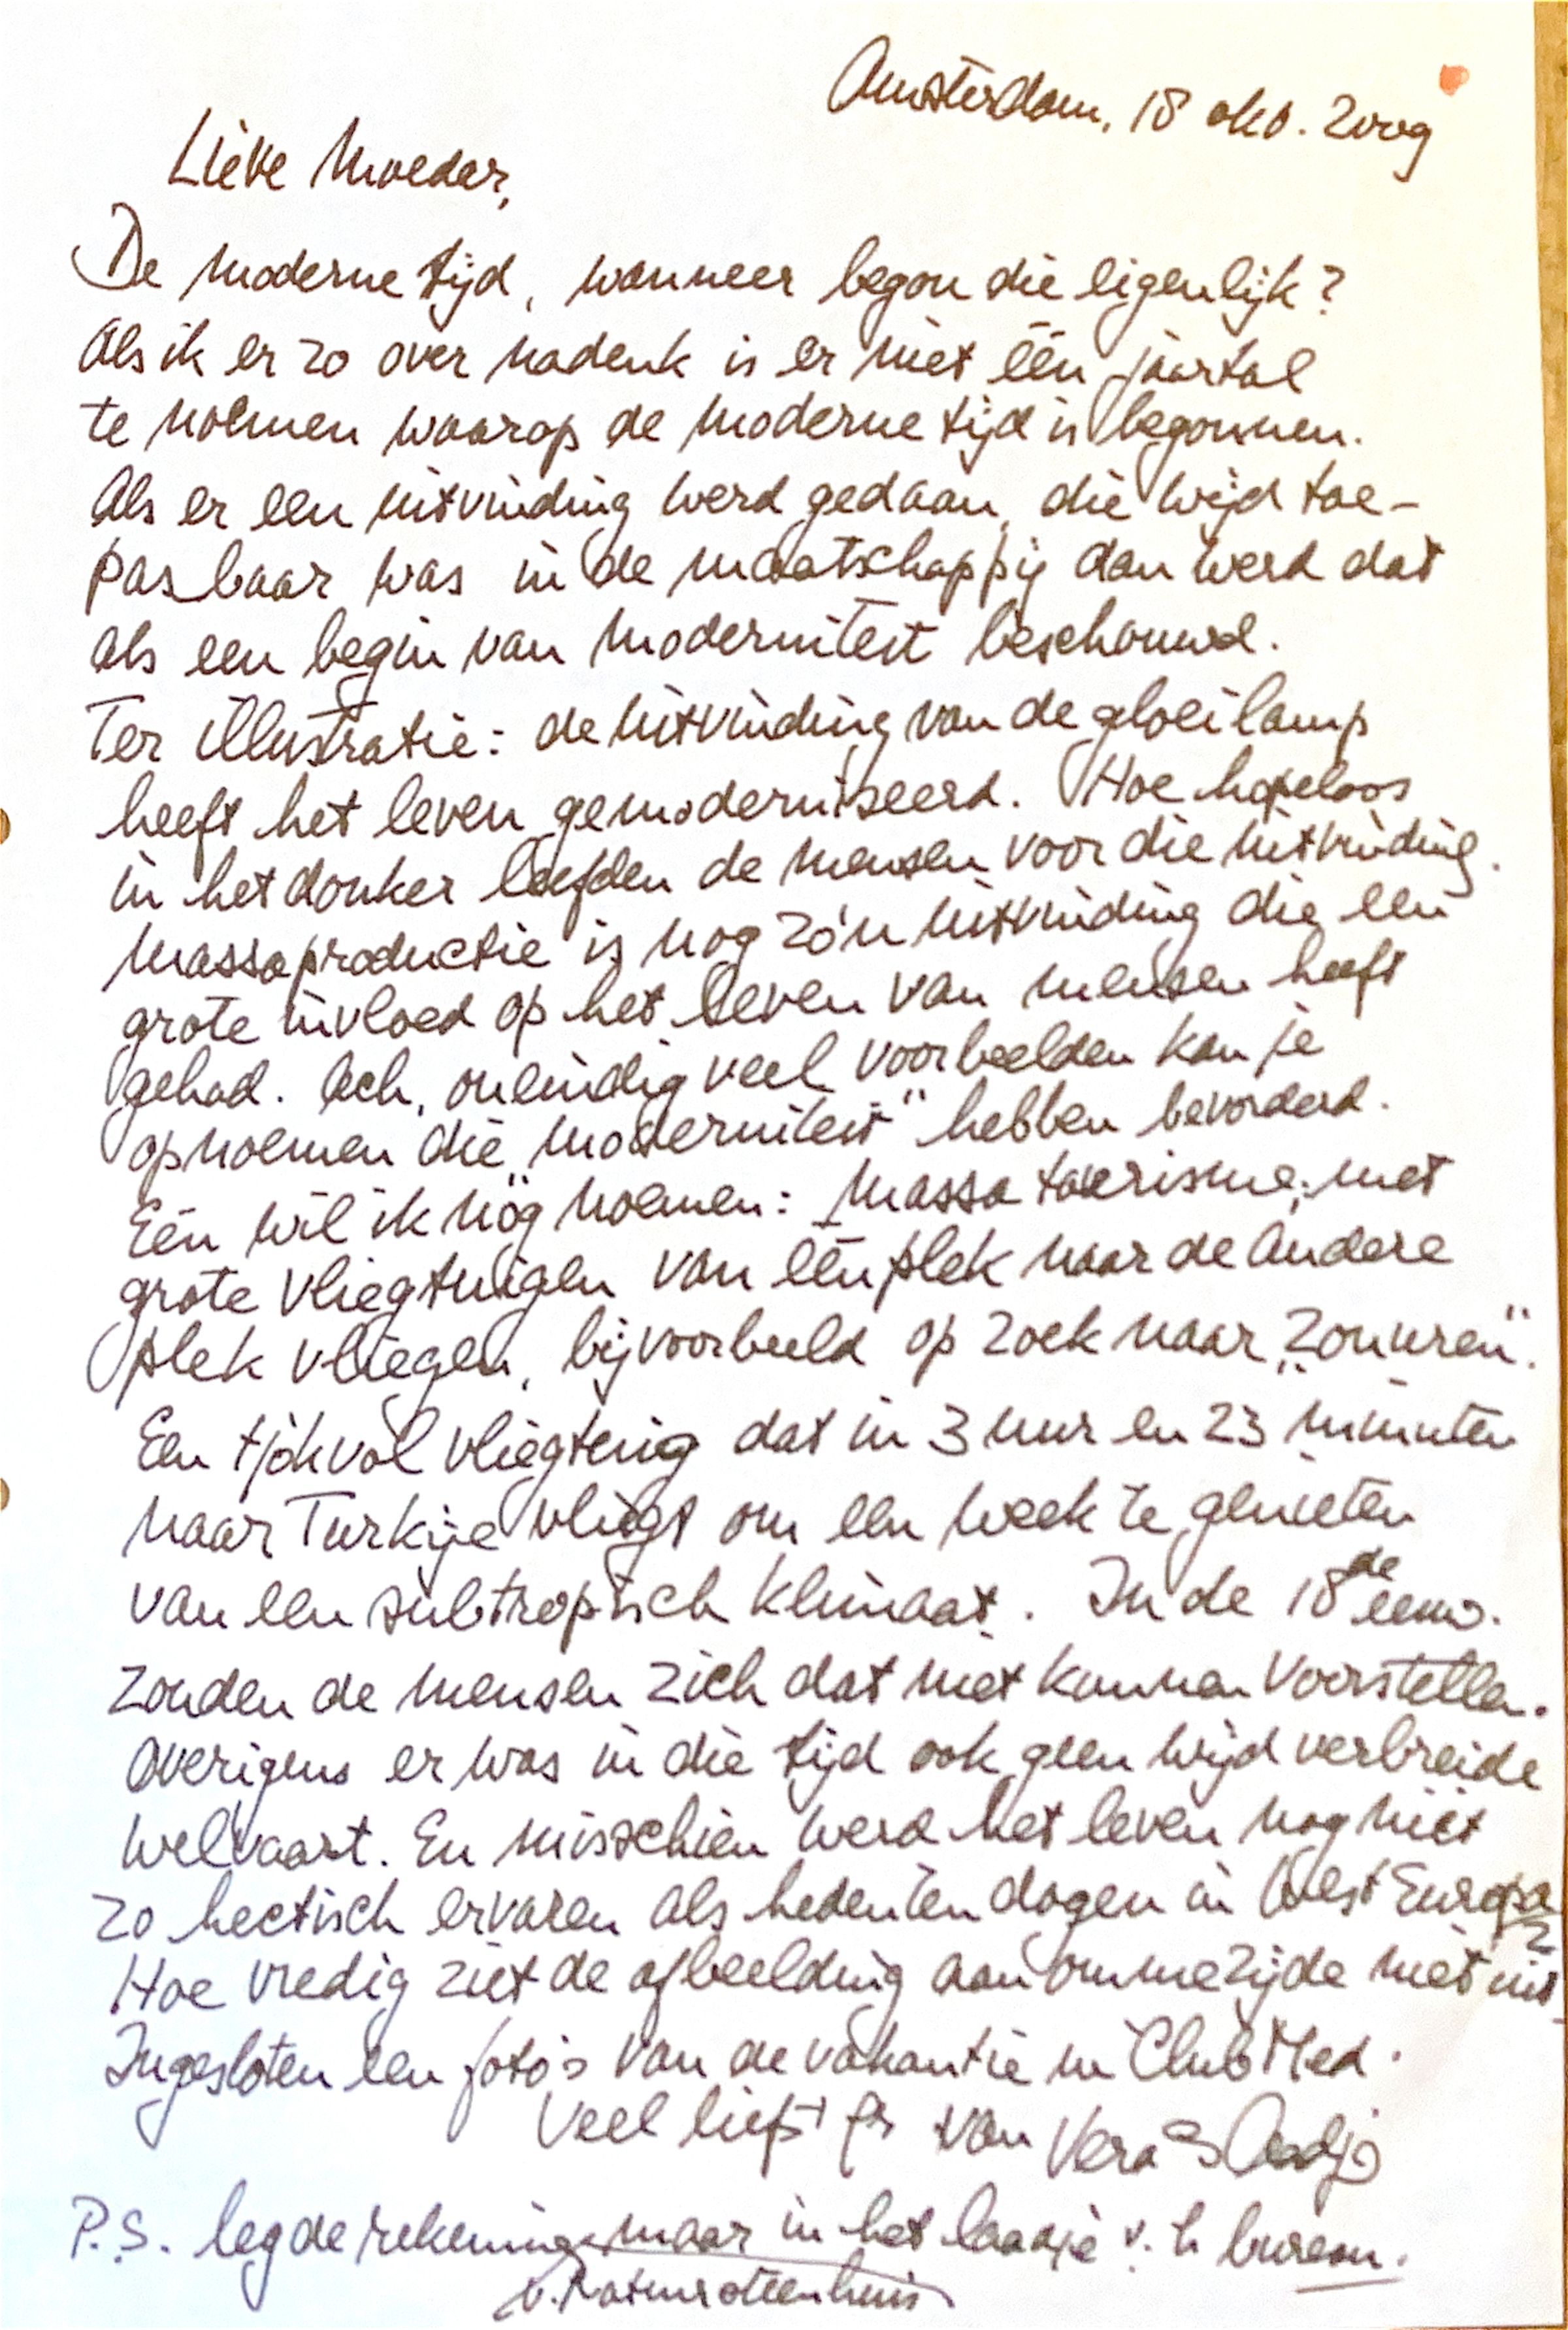 Amsterdam, 18 okt. 2009
Lieve Moeder,
De moderne tijd, wanneer begon die eigenlijk?
Als ik er zo over nadenk is er niet één jaartal
te noemen waarop de moderne tijd is begonnen.
Als er een uitvinding werd gedaan, die wijd toe-
pasbaar was in de maatschappij dan werd dat
als een begin van moderniteit beschouwd.
Ter illustratie: de uitvinding van de gloeilamp
heeft het leven gemoderniseerd. Hoe hopeloos
in het donker leefden de mensen voor die uitvinding.
Massaproductie is nog zo'n uitvinding die een
grote invloed op het leven van mensen heeft
gehad. Ach, oneindig veel voorbeelden kan je
opnoemen die „moderniteit" hebben bevorderd.
Eén wil ik nög noemen: massa toerisme; met
grote vliegtuigen van één plek naar de andere
plek vliegen, bijvoorbeeld op zoek naar „zonuren".
Een tjokvol vliegtuig dat in 3 uur en 23 minuten
naar Turkije vliegt om een week te genieten
van een subtropisch klimaat. In de 18de eeuw.
zouden de mensen zich dat niet kunnen voorstellen.
Overigens er was in die tijd ook geen wijd verbreide
welvaart. En misschien werd het leven nog niet
zo hectisch ervaren als hedentendagen in West Europa
Hoe vredig ziet de afbeelding aan ommezijde niet uit
Ingesloten een foto's van de vakantie in Club Med.
Veel liefs van Vera
P.S. leg de rekening maar in het laadje v. h bureau.
v. Natuursteenhuis